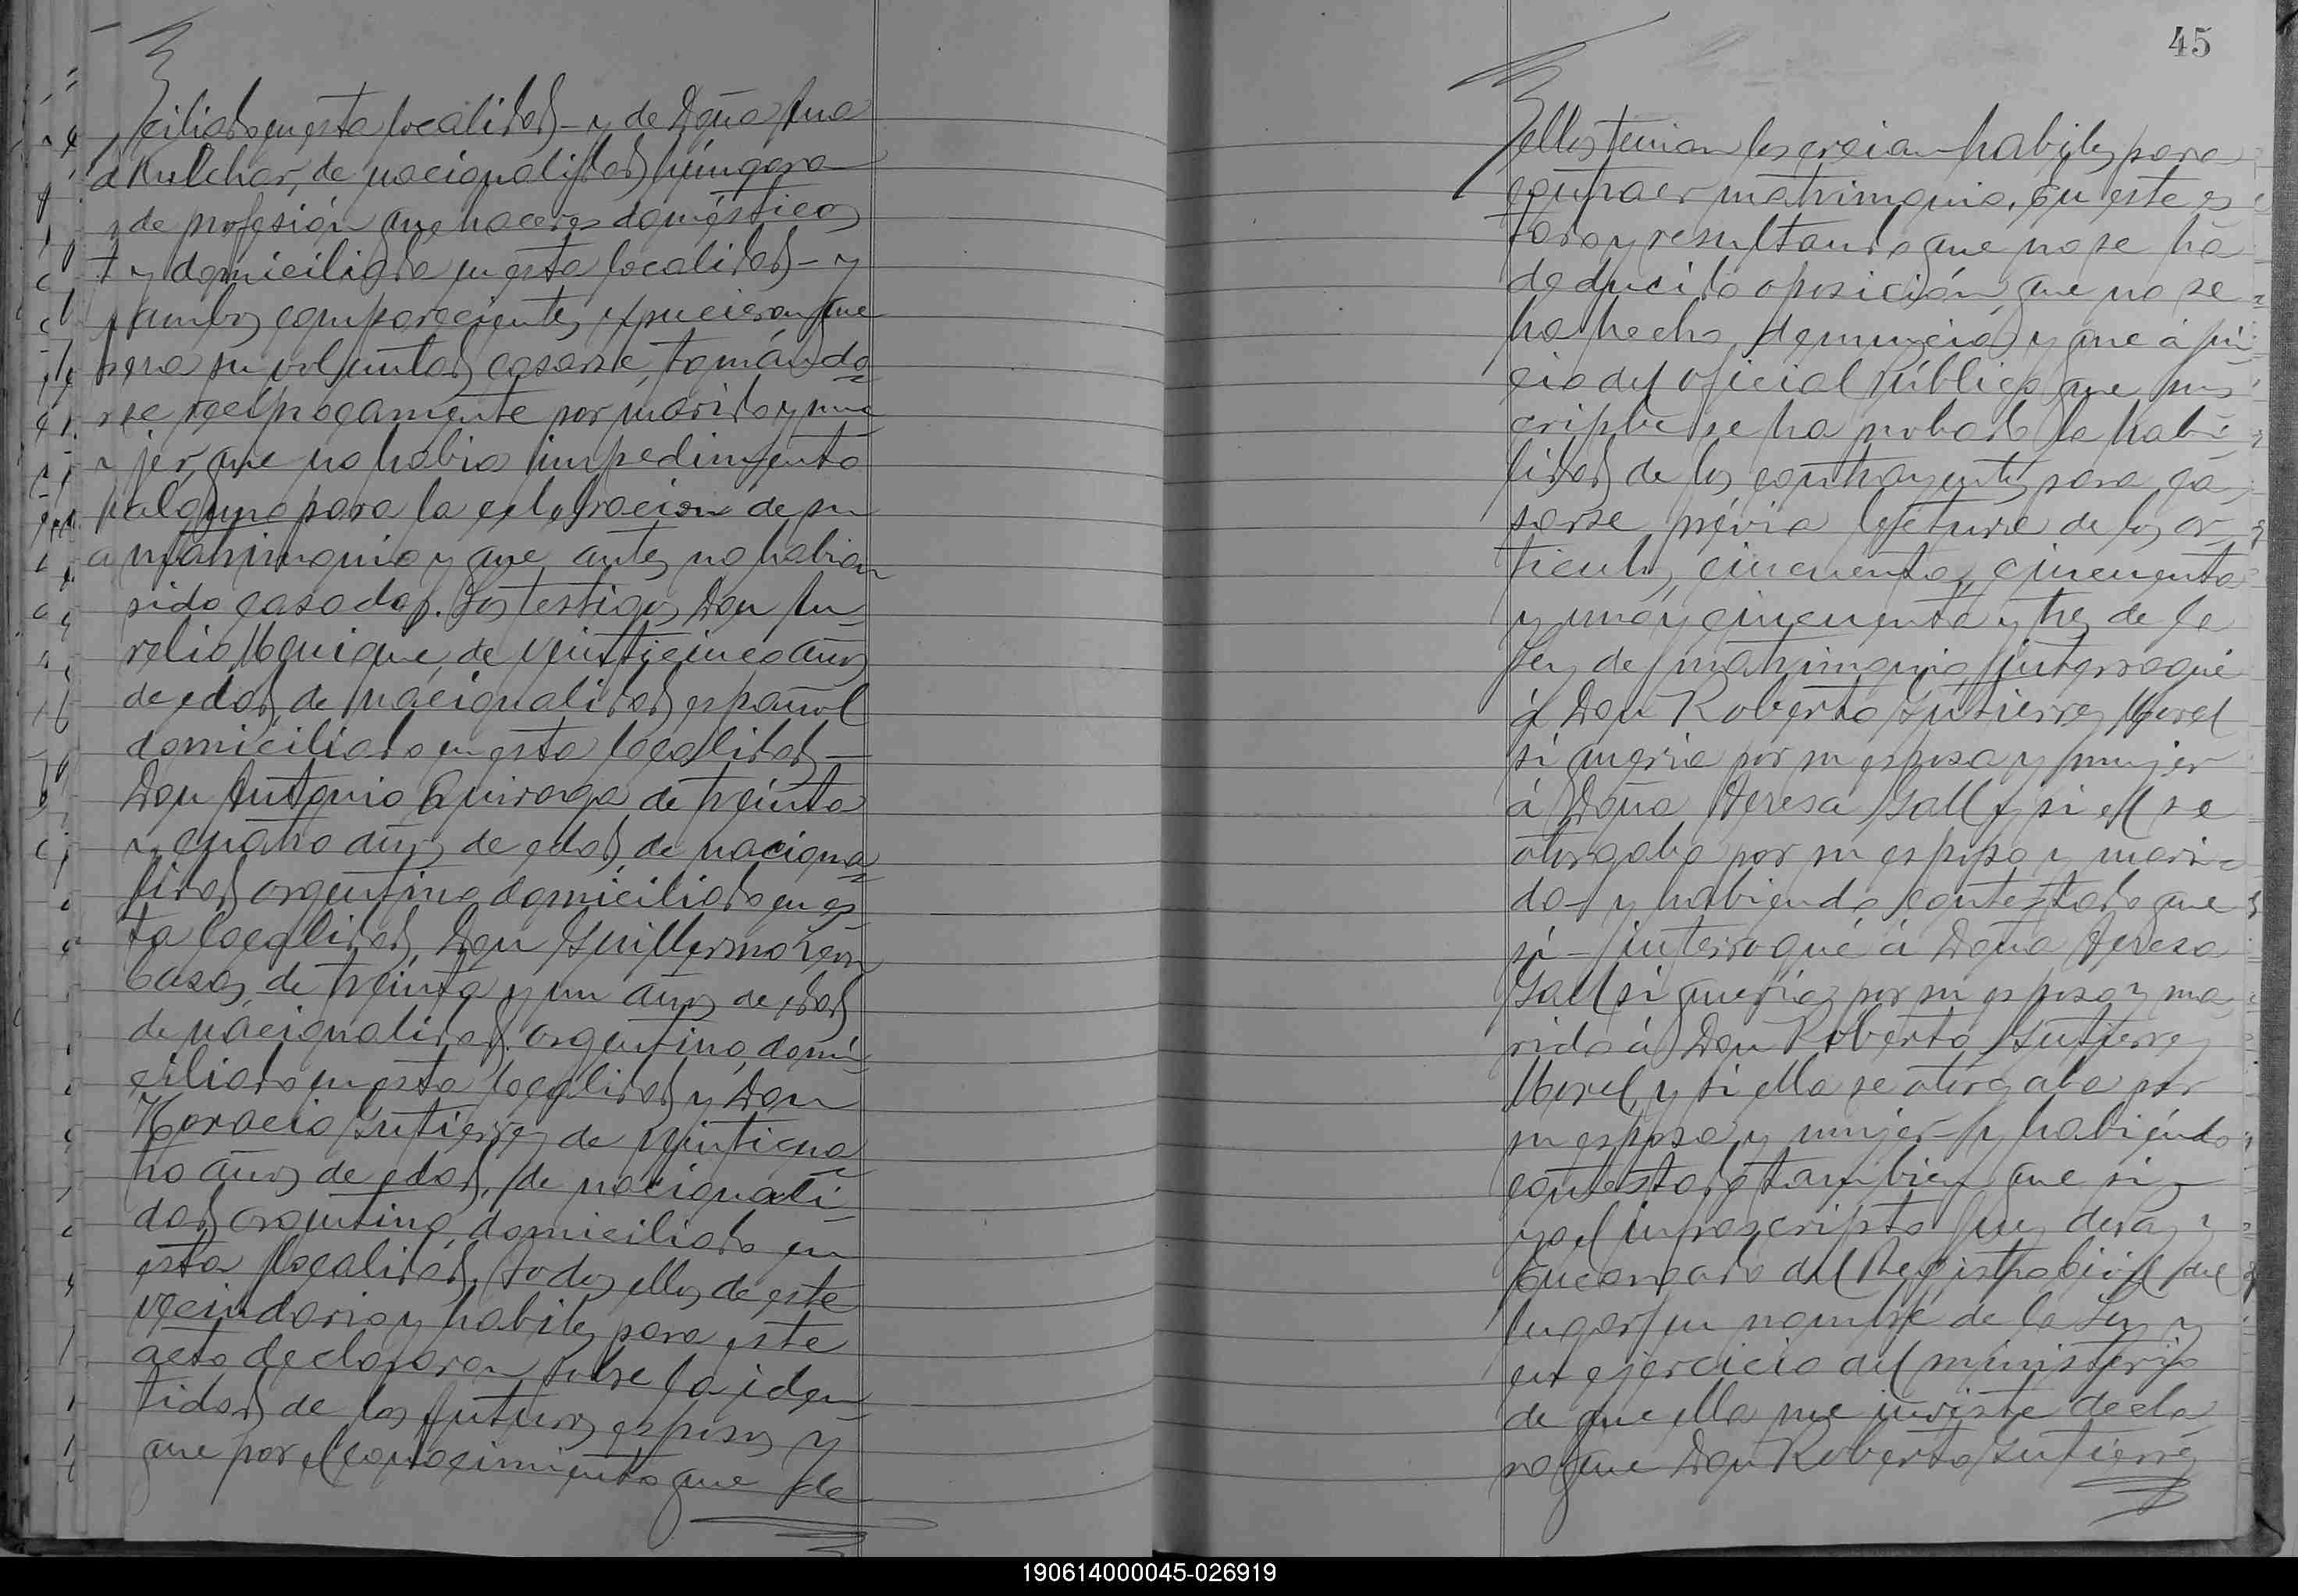 ciliado en esta localidad – y de Doña Ana
Kulchar, de nacionalidad húngara
de profesión quehaceres domésticos
y domiciliada en esta localidad – y
ambos comparecientes expucieron que
era su voluntad casarse, tomándo=
se recíprocamente por marido y mu
jer, que no habia impedimento
alguno para la celebracion de su
matrimonio y que antes no habian
sido casados. Los testigos Don Au-
relio Manique, de veinticinco años
de edad, de nacionalidad español
domiciliado en esta localidad –
Don Antonio Quiroga de treinta
y cuatro años de edad, de naciona=
lidad argentino domiciliado en es
ta localidad, Don Guillermo
Casas, de treinta y un años de edad
de nacionalidad argentino, domi=
ciliado en esta localidad y Don
Horacio Gutierrez de veinticua
tro años de edad, de nacionali=
dad argentino, domiciliado en
esta localidad, todos ellos de este
vecindario y habiles para este
acto declararon sobre la iden
tidad de los futuros esposos y
que por el conocimiento que de
45
ellos tenian los creian habiles para
contraer matrimonio. En este es
tado y resultando que no se ha
deducido oposición, que no se
ha hecho denuncia, y que á jui
cio del oficial Público que sus
cribe se ha probado la habi-
lidad de los contrayentes para ca
sarse, prévia lectura de los ar
ticulos, cincuenta, cincuenta
y uno y cincuenta y tres de la
Ley de matrimonio, interrogué
á Don Roberto Gutierrez Morel
si queria por su esposa y mujer
á Doña Teresa Gall y si el se
otorgaba por su esposo y mari=
do – y habiendo contestado que
si – interrogué á Doña Teresa
Gall si queria por su esposo y ma
rido á Don Roberto Gutierrez
Morel, y si ella se otorgaba por
su esposa y mujer – y habiéndo
contestado tambien que si –
yo el infrascripto Juez de Paz y
Encargado del Registro Civil del
lugar, en nombre de la Ley y
en ejercicio del ministerio
de que ella me inviste decla
ro que Don Roberto Gutierrez
190614000045-026919